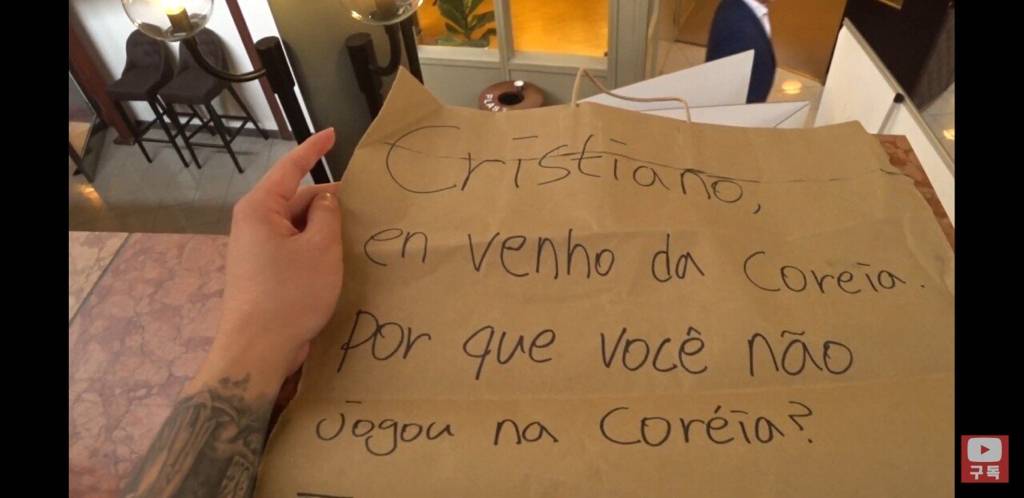 Cristiano,
en venho da Coreia.
Por que você não
Jogou na Coréia?
구독